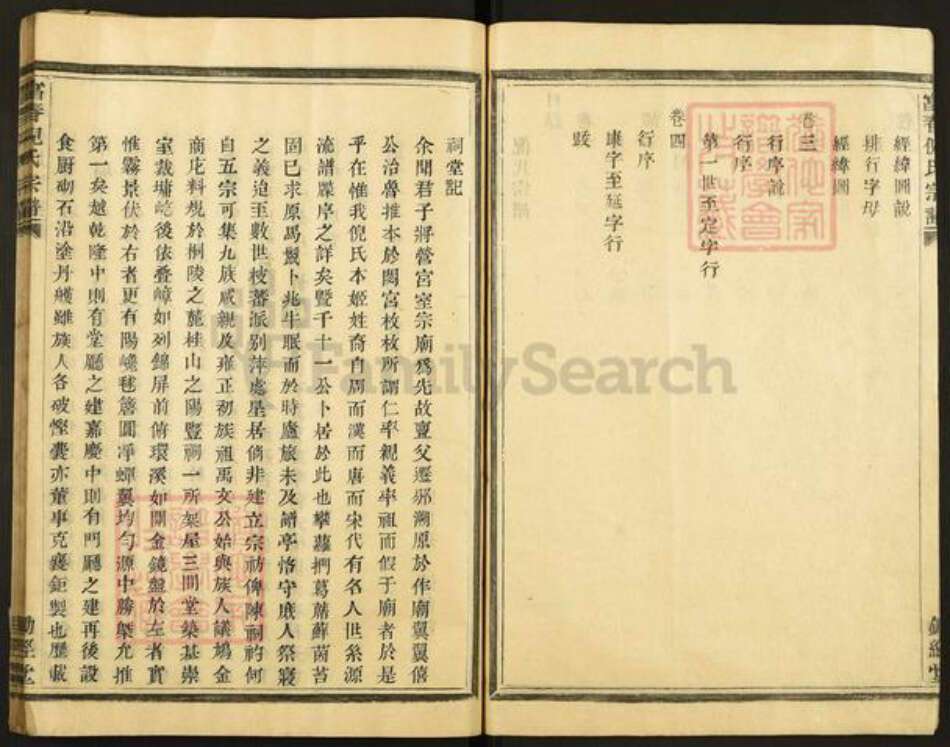 經緯圖說
排行字母
經緯圖
卷三
行序說
行序
第一世至定字行
卷四
行序
康字至延字行
跋
富春倪氏宗譜
祠堂記
余聞君子將營宮室宗廟爲先故亶父遷邠溯原於作廟翼翼僖
公治魯推本於閟宮枚枚所謂仁率親義率祖而假于廟者於是
乎在惟我倪氏本姬姓裔自周而漢而唐而宋代有名人世系源
流譜牒序之詳矣暨千十一公卜居於此也攀蘿捫葛蓆蘚茵苔
固已求原馬鬣卜兆牛眠而於時廬旅未及譜亭恪守庶人祭寢
之義迨至數世枝蕃派別萍處星居倘非建立宗祊俾陳祠礿何
自五宗可集九族咸親及雍正初族祖禹文公始與族人議鳩金
商庀料規於桐陵之麓桂山之陽豎祠一所架屋三間堂築基崇
室裁墉屹後依叠嶂如列錦屏前俯環溪如開金鏡盤於左者實
惟霧景伏於右者更有陽巉毬簷圓淨蟬翼均勻源中勝槩允推
第一矣越乾隆中則有堂廳之建嘉慶中則有門廳之建再後設
食厨砌石沿塗丹雘雖族人各破慳囊亦董事克襄鉅製也歷載
FamilySearch